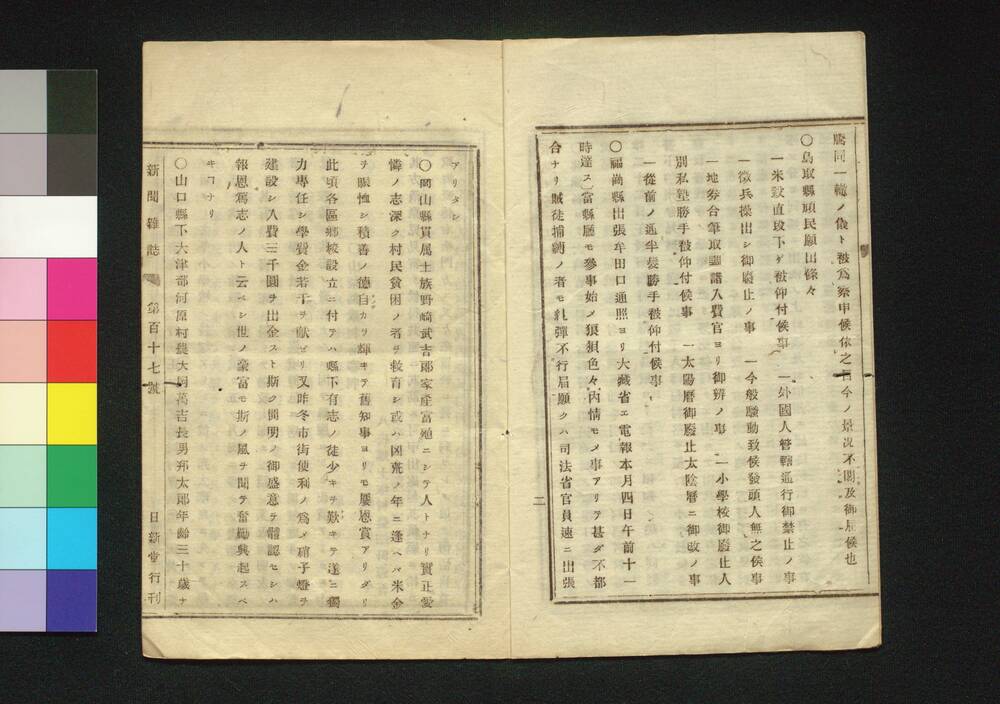 騰同一轍ノ儀ト被爲察申候依之目今ノ景况不閣及御屆候也
〇鳥取縣頑民願出條々
一米穀直段下ゲ被仰付候事 一外國人管轄通行御禁止ノ事
一徴兵操出シ御廢止ノ事 一今般騷動致候發頭人無之候事
一地券合筆取調諸入費官ヨリ御辨ノ事 一小學校御廢止人
別私塾勝手被仰付候事 一太陽曆御廢止太陰曆ニ御改ノ事
一從前ノ通半髪勝手被仰付候事
〇福岡縣出張牟田口通照ヨリ大藏省エ電報本月四日午前十一
時達ス當縣廳モ參事始メ狼狽色々内情モメ事アリテ甚ダ不都
合ナリ賊徒捕縛ノ者モ糺彈不行屆願クハ司法省官員速ニ出張
二
アリタシ
〇岡山縣貫属士族野崎武吉郎家産富殖ニシテ人トナリ實正愛
憐ノ志深ク村民貧困ノ者ヲ救育シ或ハ凶荒ノ年ニ逢ヘバ米金
ヲ賑恤シ積善ノ德自カラ輝キテ舊知事ヨリモ屢恩賞アリタリ
此頃各區鄕校設立ニ付テハ縣下有志ノ徒少キヲ歎キテ遂ニ獨
力專任シ學費金若干ヲ献ゼリ又昨冬市街便利ノ爲メ硝子燈ヲ
建設シ入費三千圓ヲ出金スト斯ク開明ノ御盛意ヲ體認セシハ
報恩篤志ノ人ト云ベシ世ノ豪富モ斯ノ風ヲ聞テ奮勵興起スベ
キコナリ
〇山口縣下大津郡河原村農大洞萬吉長男邦太郎年齡三十歳ナ
新聞雜誌 第百十七號 日新堂行刊